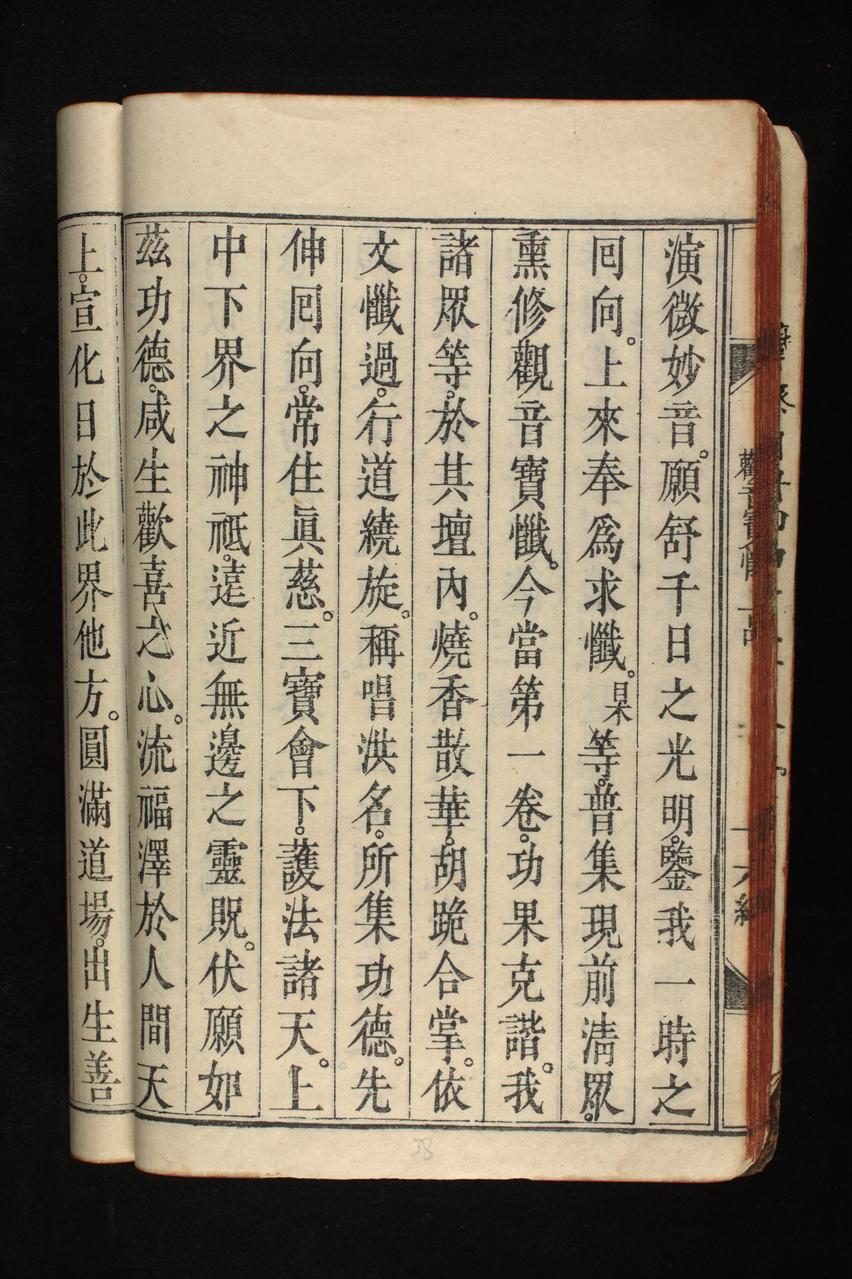 演微妙音。願舒千日之光明。鑒我一時之
囘向。上來奉爲求懺。某等。普集現前淸眾。
熏修觀音寶懺。今當第一卷。功果克諧。我
諸眾等。於其壇內。燒香散華。胡跪合掌。依
文懺過。行道繞旋。稱唱洪名。所集功德。先
伸囘向。常住眞慈。三寶會下。護法諸天。上
中下界之神祇。遠近無邊之靈貺。伏願如
茲功德。咸生歡喜之心。流福澤於人間天
上。宣化日於此界他方。圓滿道場。出生善
觀音寶懺
38